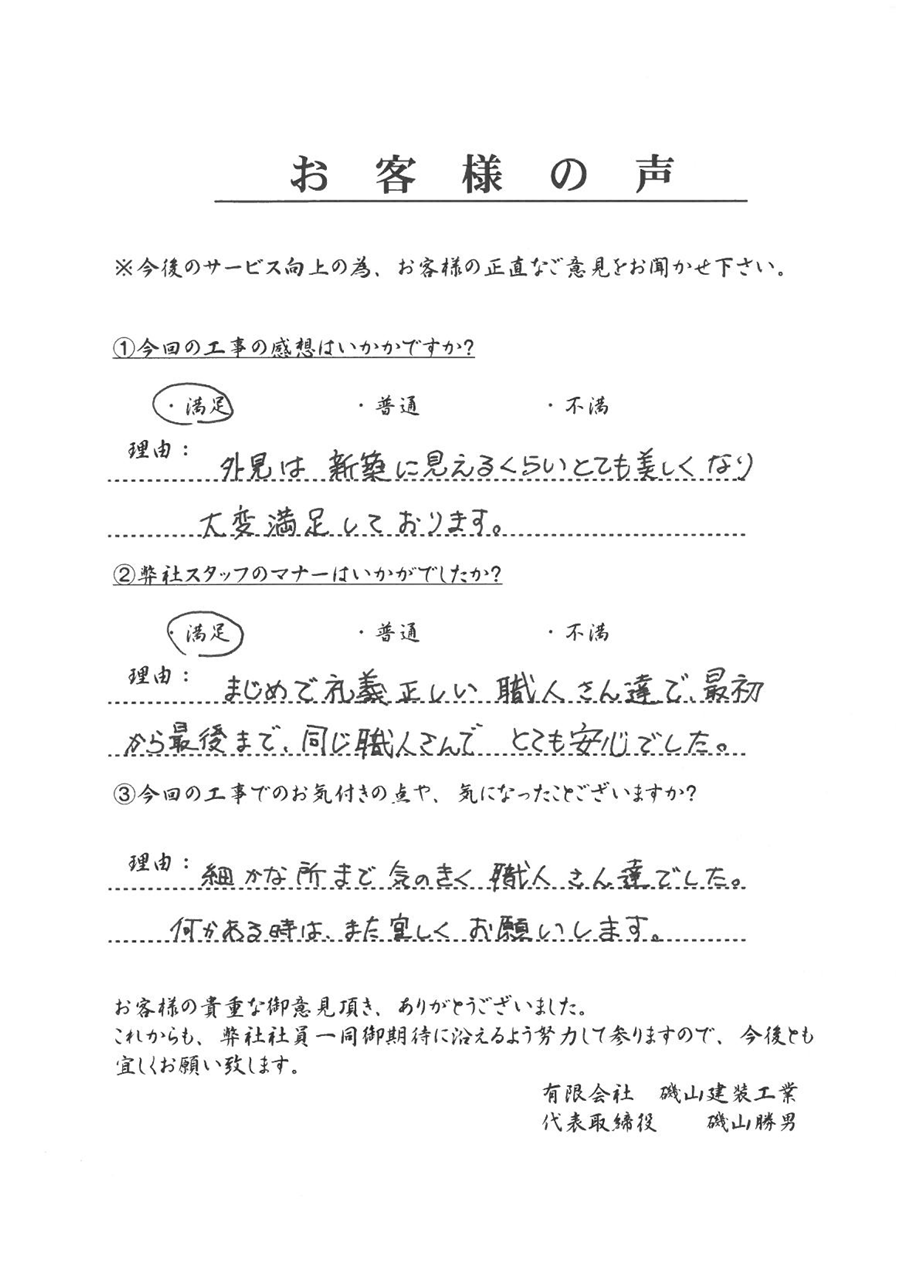 お客様の声
※今後のサービス向上の為、お客様の正直なご意見をお聞かせ下さい。
①今回の工事の感想はいかかですか?
・満足 ・普通 ・不満
理由：
外見は 新築に見えるくらいとても美しくなり
大変満足しております。
②弊社スタッフのマナーはいかがでしたか?
・満足 ・普通 ・不満
理由：
まじめで礼義正しい 職人さん達で、最初
から最後まで、同じ職人さんで とても安心でした。
③今回の工事でのお気付きの点や、気になったことございますか?
理由：
細かな所まで 気のきく 職人さん達でした。
何かある時は、また宜しく お願いします。
お客様の貴重な御意見頂き、ありがとうございました。
これからも、弊社社員一同御期待に沿えるよう努力して参りますので、今後とも
宜しくお願い致します。
有限会社 磯山建装工業
代表取締役 磯山勝男